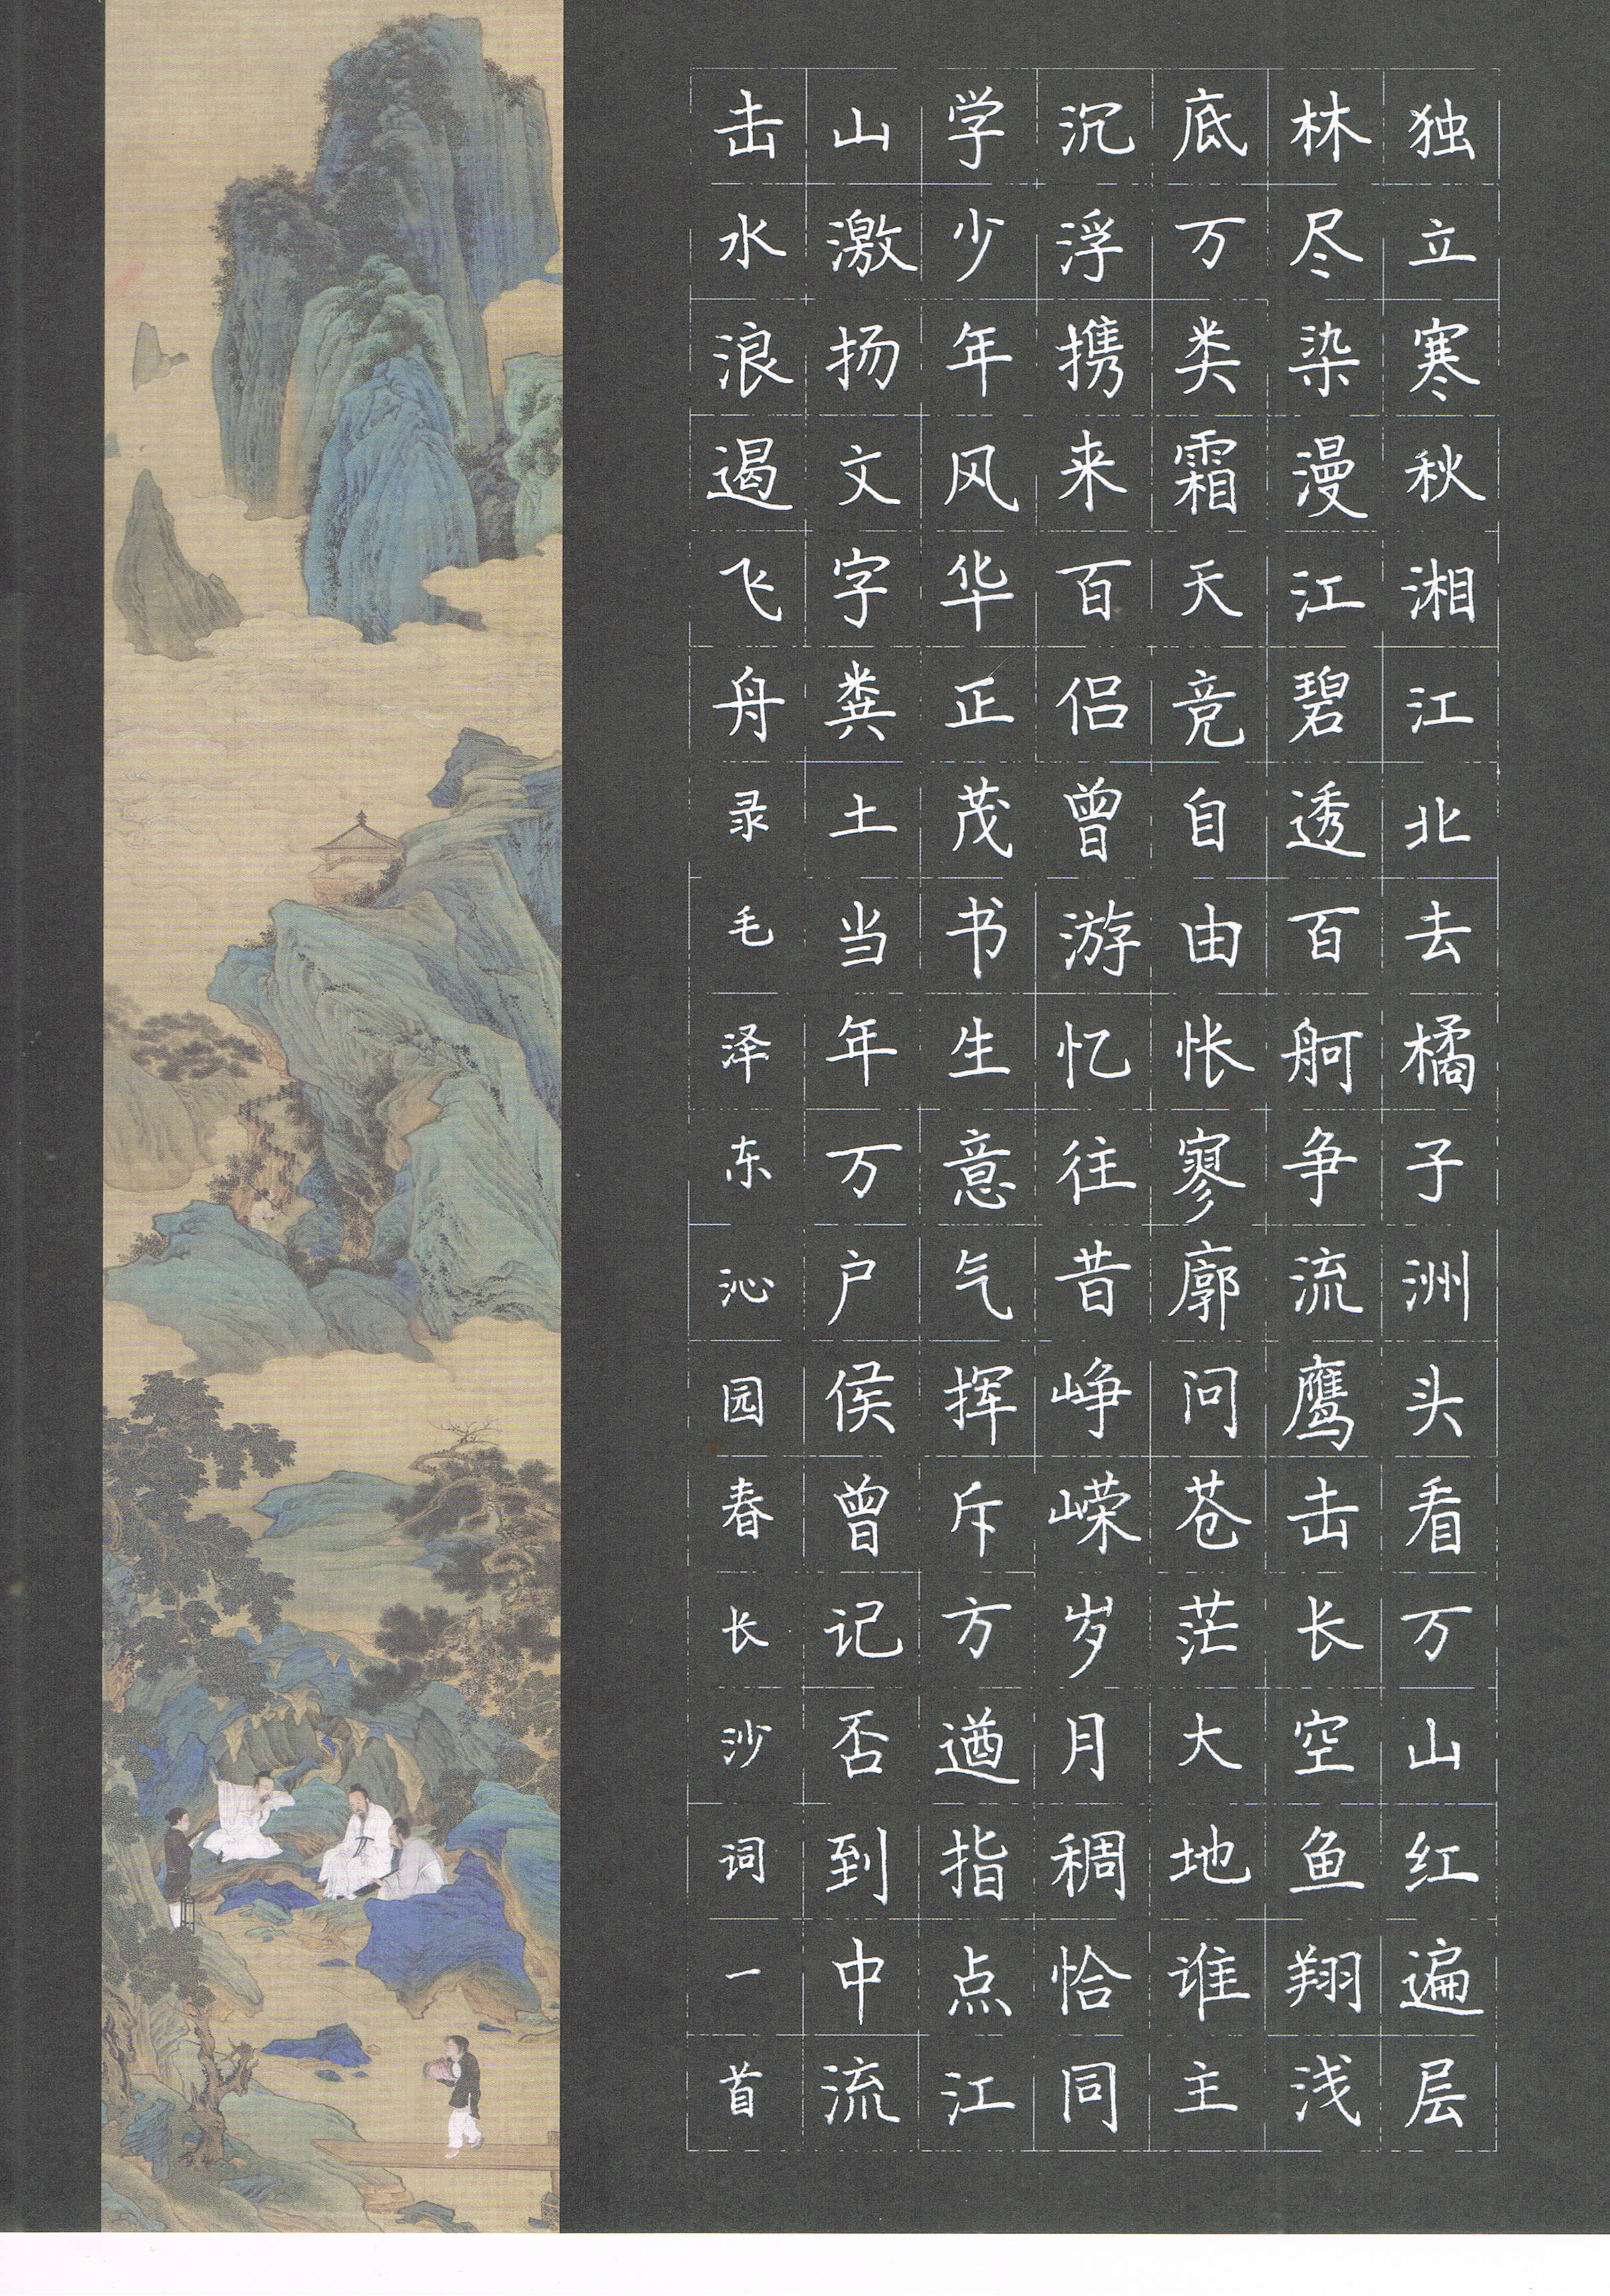 独立寒秋湘江北去橘子洲头看万山红遍层
林尽染漫江碧透百舸争流鹰击长空鱼翔浅
底万类霜天竞自由怅寥廓问苍茫大地谁主
沉浮携来百侣曾游忆往昔峥嵘岁月稠恰同
学少年风华正茂书生意气挥斥方遒指点江
山激扬文字粪土当年万户侯曾记否到中流
击水浪遏飞舟录毛泽东沁园春长沙词一首